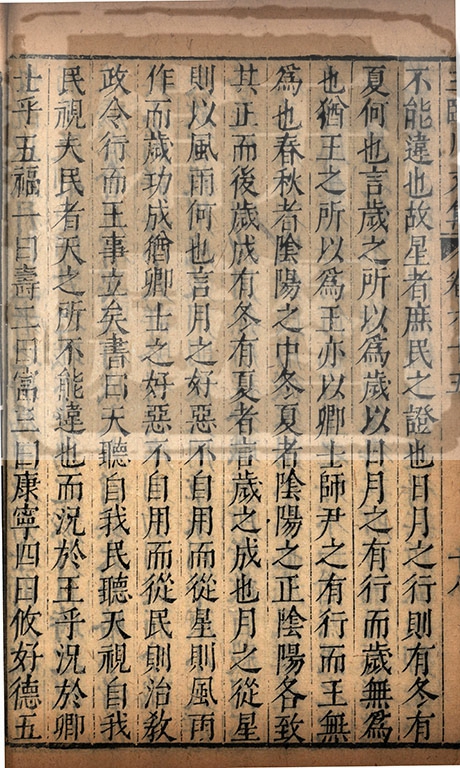 王臨川文集 卷六十五 十八
不能違也故星者庶民之證也日月之行則有冬有
夏何也言歲之所以爲歲以日月之有行而歲無爲
也猶王之所以爲王亦以卿士師尹之有行而王無
爲也春秋者陰陽之中冬夏者陰陽之正陰陽各致
其正而後歲成有冬有夏者言歲之成也月之從星
則以風雨何也言月之好惡不自用而從星則風雨
作而歲功成猶卿士之好惡不自用而從民則治教
政令行而王事立矣書曰天聽自我民聽天視自我
民視夫民者天之所不能違也而況於王乎況於卿
士乎五福一曰壽二曰富三曰康寧四曰攸好德五